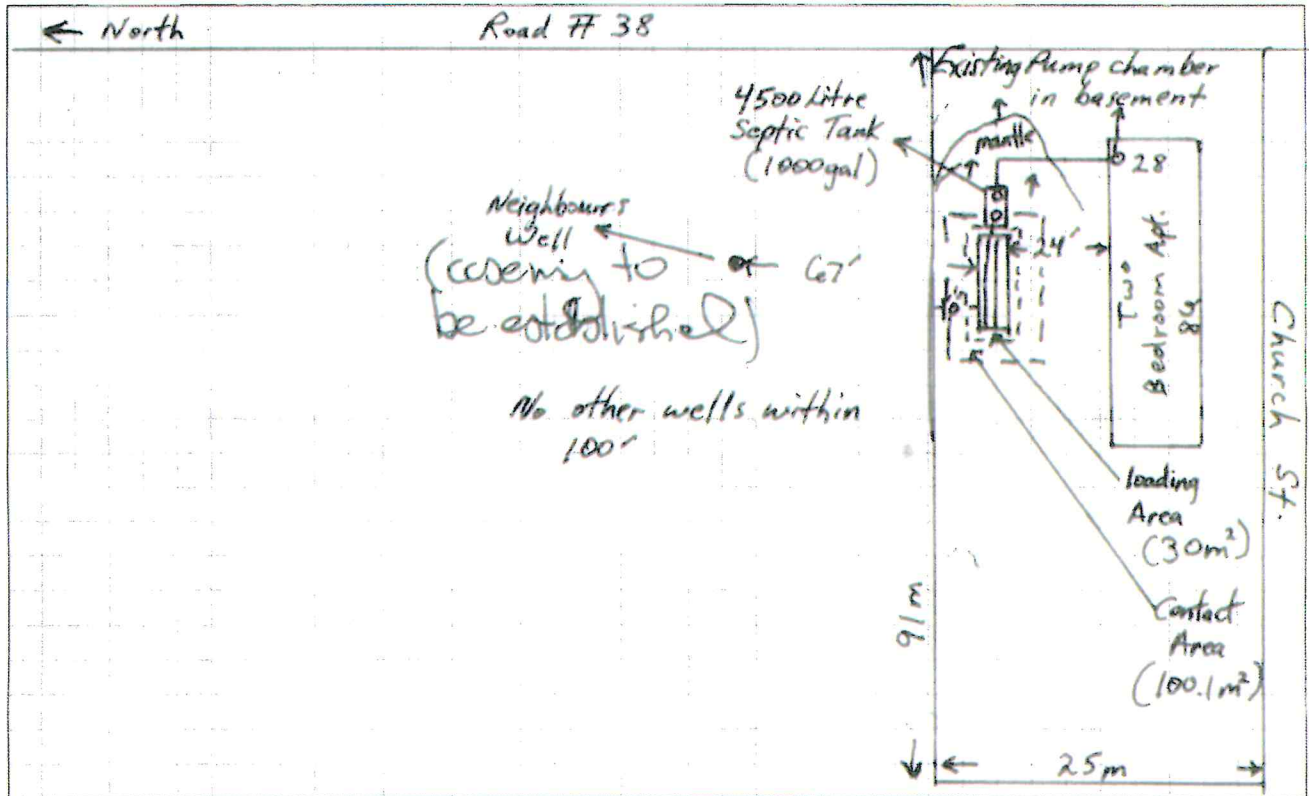 ← North
Road # 38
Existing Pump chamber
in basement
4500 Litre
Septic Tank
(1000gal)
mantle
28
Neighbours
Well
(caseing to
be established)
67'
24'
Two
Bedroom Apt.
84
Church St.
No other wells within
100'
loading
Area
(30m²)
Contact
Area
(100.1m²)
91m
25m